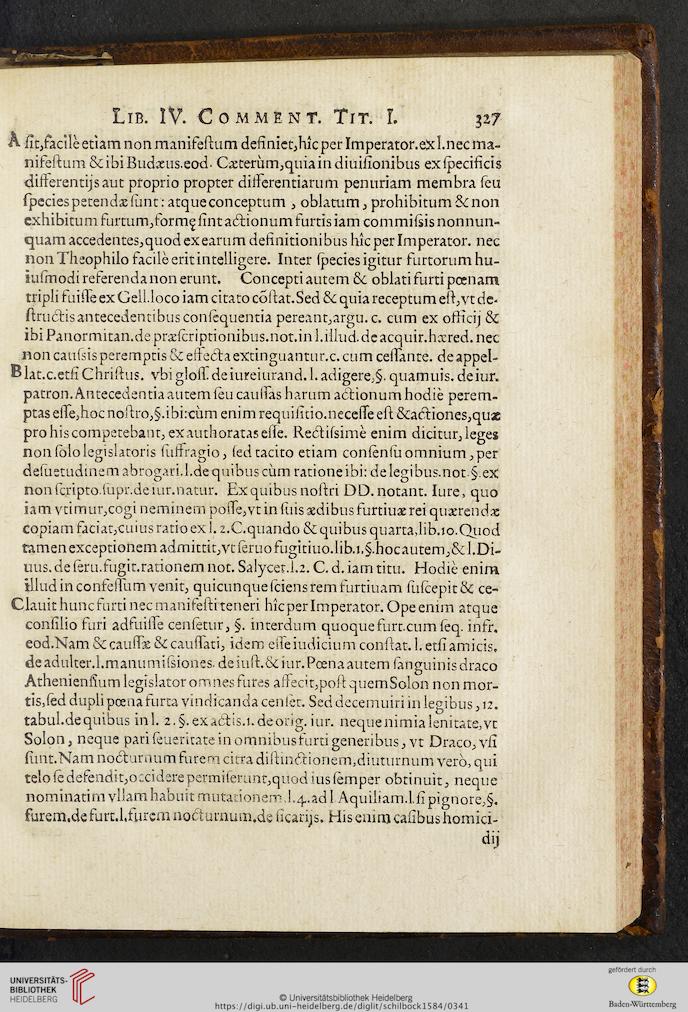 LIB. IV. COMMENT. TIT. I. 327
A ſit,facilè etiam non manifeſtum definiet,hîc per Imperator.ex l.nec ma-
nifeſtum & ibi Budæus.eod. Cæterùm,quia in diuiſionibus ex ſpecificis
differentijs aut proprio propter differentiarum penuriam membra ſeu
ſpecies petendæ ſunt: atque conceptum , oblatum , prohibitum & non
exhibitum furtum,formę ſint actionum furtis iam commiſsis nonnun-
quam accedentes,quod ex earum definitionibus hîc per Imperator. nec
non Theophilo facilè erit intelligere. Inter ſpecies igitur furtorum hu-
iuſmodi referenda non erunt. Concepti autem & oblati furti pœnam
tripli fuiſſe ex Gell.loco iam citato cõſtat.Sed & quia receptum eſt,vt de-
ſtructis antecedentibus conſequentia pereant,argu. c. cum ex officij &
ibi Panormitan.de præſcriptionibus.not.in l.illud. de acquir.hæred. nec
non cauſsis peremptis & effecta extinguantur.c.cum ceſſante. de appel-
B lat.c.etſi Chriſtus. vbi gloſſ. de iureiurand. l. adigere,§. quamuis. de iur.
patron.Antecedentia autem ſeu cauſſas harum actionum hodiè perem-
ptas eſſe,hoc noſtro,§.ibi:cùm enim requiſitio.neceſſe eſt & actiones,quæ
pro his competebant, ex authoratas eſſe. Rectiſsimè enim dicitur, leges
non ſolo legislatoris ſuffragio , ſed tacito etiam conſenſu omnium , per
deſuetudinem abrogari.l.de quibus cùm ratione ibi: de legibus.not.§.ex
non ſcripto.ſupr.de iur.natur. Ex quibus noſtri DD. notant. Iure, quo
iam vtimur,cogi neminem poſſe,vt in ſuis ædibus furtiuæ rei quærendæ
copiam faciat,cuius ratio ex l. 2.C.quando & quibus quarta,lib.10.Quod
tamen exceptionem admittit,vt ſeruo fugitiuo.lib.1.§.hoc autem,& l.Di-
uus. de ſeru.fugit.rationem not. Salycet.l.2. C. d. iam titu. Hodiè enim
illud in confeſſum venit, quicunque ſciens rem furtiuam ſuſcepit & ce-
C lauit hunc furti nec manifeſti teneri hîc per Imperator. Ope enim atque
conſilio furi adfuiſſe cenſetur, §. interdum quoque furt.cum ſeq. infr.
eod.Nam & cauſſæ & cauſſati, idem eſſe iudicium conſtat. l. etſi amicis.
de adulter.l.manumiſsiones. de iuſt.& iur.Pœna autem ſanguinis draco
Athenienſium legislator omnes fures affecit,poſt quem Solon non mor-
tis,ſed dupli pœna furta vindicanda cenſet. Sed decemuiri in legibus ,12.
tabul.de quibus in l. 2.§. ex actis.1. de orig. iur. neque nimia lenitate,vt
Solon , neque pari ſeueritate in omnibus furti generibus , vt Draco, vſi
ſunt.Nam nocturnum furem citra diſtinctionem,diuturnum verò, qui
telo ſe defendit,occidere permiſerunt,quod ius ſemper obtinuit, neque
nominatim vllam habuit mutationem.l.4.ad l Aquiliam.l.ſi pignore,§.
furem.de furt.l.furem nocturnum.de ſicarijs. His enim caſibus homici-
dij
UNIVERSITÄTS-
BIBLIOTHEK
HEIDELBERG
© Universitätsbibliothek Heidelberg
https://digi.ub.uni-heidelberg.de/diglit/schilbock1584/0341
gefördert durch
Baden-Württemberg